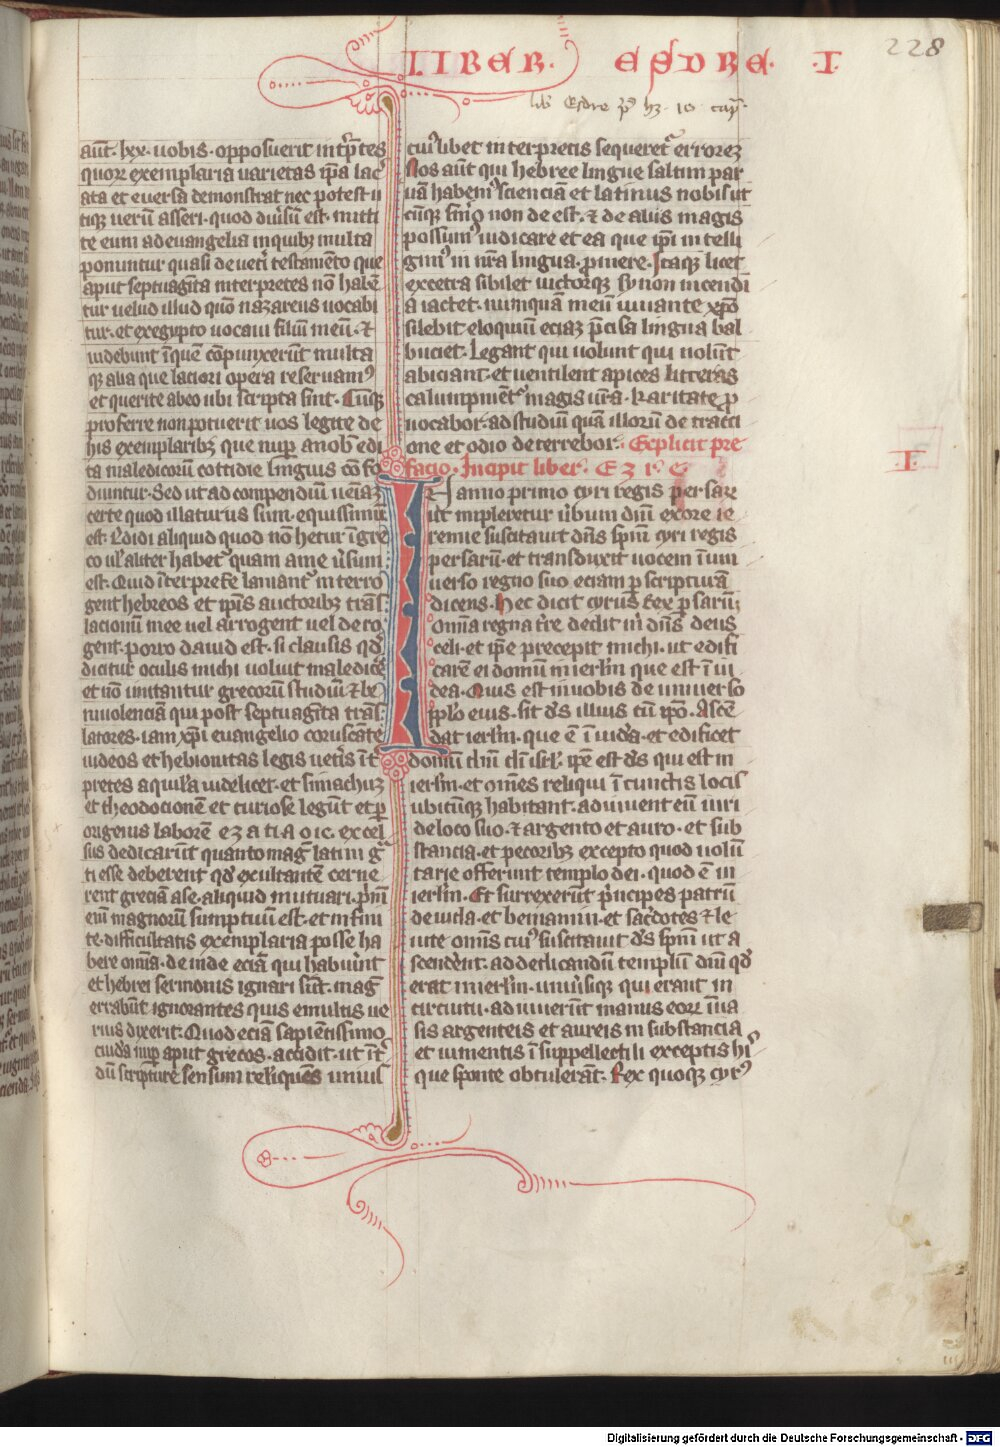 LIBER. ESDRE. .I.
228
lib Esdre p̄ hꝫ 10 cap̄
aūt. lxx. uobis. opposuerit int̄p̄tes
quoꝝ exemplaria uarietas ip̄a lac̄
ata et euersa demonstrat nec potest u
tiqꝫ uerū asseri. quod diu̓sū est. mitti
te eum ad euangelia in quibꝫ multa
ponuntur quasi de uet̓i testamēto que
aput septuagīta interpretes nō habē
tur uelud illud quō nazareus uocabi
tur. et ex egypto uocaui filiū meū. ⁊
uidebunt ī quē cōpunxerūt multa
qꝫ alia que laciori opera reseruamꝰ
et querite ab eo ubi sc̓ipta sint. Cūqꝫ
proferre non potuerit uos legite de
his exemplaribꝫ que nup̄ a nob̄ edi
ta maledicorū cottidie linguis cōfo
diuntur. Sed ut ad compendiū ueiāꝫ
certe quod illaturus sum. equissimū
est. Edidi aliquid quod nō hetur ī gre
co ul̓ aliter habetꝰ quam a me u̓sum
est. Quid īterprete laniantꝰ interro
gent hebreos et ip̄is auctoribꝫ trās
lacionū mee uel arrogent uel dero
gent. porro aliud est. si clausis qd̓
dicitur oculis michi uolūt maledicē
et nō imitantur grecorū studiū ⁊ be
niuolenciā qui post septuagīta trās
latores. iam xp̄i euangelio coruscāte
iudeos et hebionitas legis uet̓is īt̓
pretes aquilā uidelicet. et simachuꝫ
et theodocionē et curiose legūt et p̄
origenis laborē ezatiaoic. eccel
siis dedicarūt quanto mag̓ latini g̓
ti esse deberent qd̓ exultantē cerne
rent greciā a se. aliquid mutuari. p̓mū
enī magnorū sumptuū est. et infini
te. difficultatis exemplaria posse ha
bere omīa. deinde eciā qui habuīnt
et hebrei sermonis ignari sūt. mag̓
errabūt ignorantes quis e multis ue
rius dixerit. Quod eciā sapiētissimo
cuidā nup̄ aput grecos. accidit. ut īt̓
dū scripture sensum reliquēs uniuſ
cuiꝰlibet interpretis sequeretꝰ erroreꝫ
Nos aūt qui hebree lingue saltim par
uā habemꝰ scienciā et latinus nobis ut
cūqꝫ sm̓o non deest. ⁊ de aliis magis
possumꝰ iudicare et ea que ip̄i intelli
gimꝰ in nr̄a lingua. p̄mere. Itaqꝫ licet
excetra sibilet uictorqꝫ sinon incendi
a iactet. numquā meū iuuante xp̄o
silebit eloquiū eciaꝫ p̄cisa lingua bal
buciet. Legant qui uolunt qui nolūt
abiciant. et uentilent apices litteras
calumpniētꝰ magis ur̄a. karitate p̄
uocabor. ad studiū quā illorū detracti
one et odio deterrebor. Explicit pre
facio. Incipit liber. EZRE
.I.
IN anno primo cyri regis persare
ut impleretur u̓bum dn̄i ex ore ie
remie suscitauit dn̄s sp̄m cyri regis
persarū. et transduxit uocem ī uni
uerso regno suo eciam p̄ scripturā
dicens. Hec dicit cyrus Rex p̄sarū
Omīa regna t̓re dedit m̓ dn̄s deus
celi. et ip̄e precepit michi. ut edifi
carē ei domū in ierl̄m que est ī iu
dea. Quis est in uobis de uniuerso
ip̄lo eius. sit ds̄ illius cū ip̄o. Ascē
dat ierl̄m. que ē ī iuda. et edificet
domū dn̄i dei isrl̄. ip̄e est ds̄ qui est in
ierl̄m. et om̄es reliqui ī cunctis locis
ubicūqꝫ habitant. adiuuent eū uiri
de loco suo. ⁊ argento et auro. et sub
stancia. et pecoribꝫ excepto quod uolū
tarie offerunt templo dei. quod ē in
ierl̄m. Et surrexerūt p̓ncipes patrū
de iuda. et beniamin. et sac̓dotes ⁊ le
uite om̄is cuiꝰ suscitauit ds̄ sp̄m ut a
scenderēt. ad edificandū templū dn̄i qd̓
erat in ierl̄m. uniu̓sique qui erant in
circuitu. adiuuerūt manus eoꝝ ī ua
sis argenteis et aureis in substancia
et iumentis ī suppellectili exceptis hiꝰ
que sponte obtulerāt. Rex quoqꝫ cyrꝰ
Digitalisierung gefördert durch die Deutsche Forschungsgemeinschaft - DFG